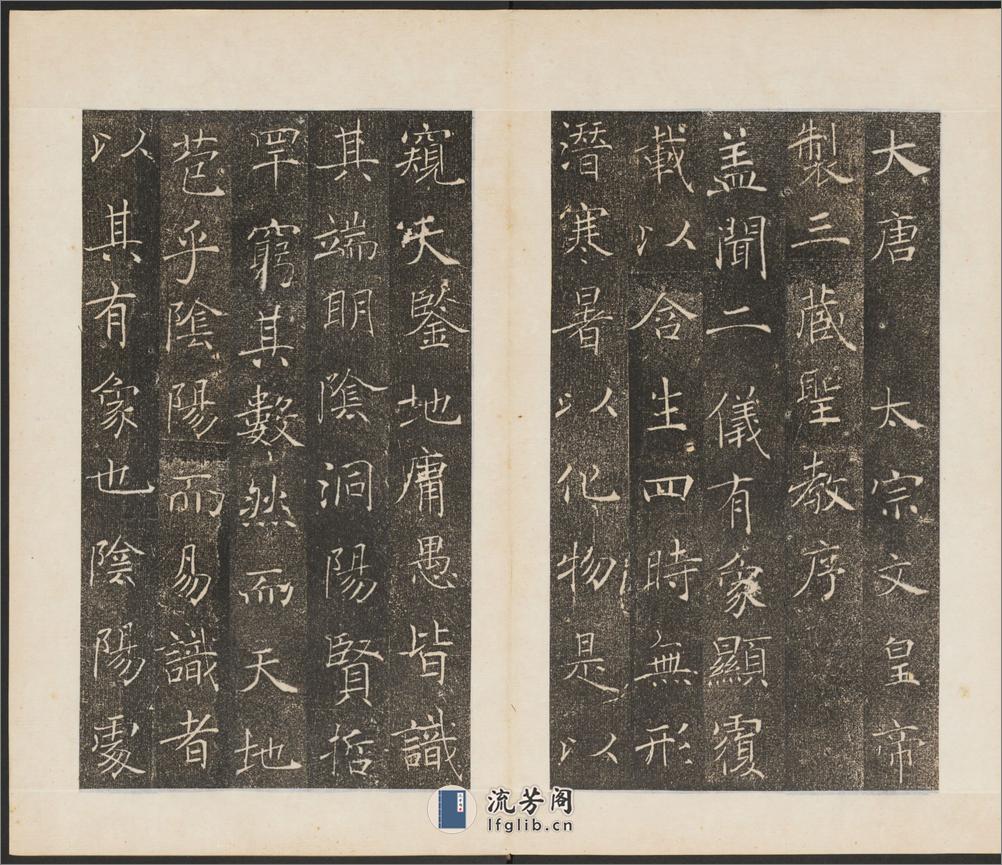 大唐太宗文皇帝
製三蔵聖教序
盖聞二儀有象顯覆
載以含生四時無形
潛寒暑以化物是以
窺天鑒地庸愚皆識
其端明陰洞陽賢哲
罕窮其數然而天地
苞乎陰陽而易識者
以其有象也陰陽處
流芳阁
lfglib.cn